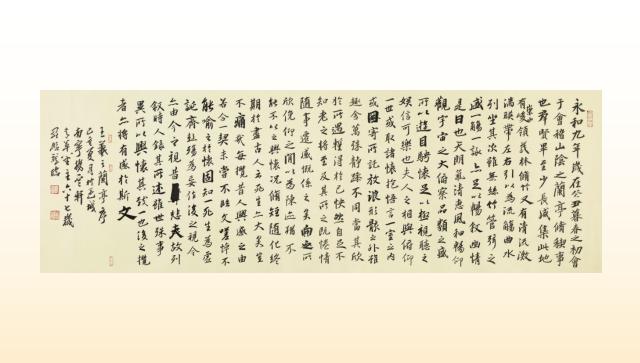 永和九年歲在癸丑暮春之初會
于會稽山陰之蘭亭脩稧事
也群賢畢至少長咸集此地
有崇山峻領茂林脩竹又有清流激
湍暎帶左右引以為流觴曲水
列坐其次雖無絲竹管弦之
盛一觴一詠亦足以暢敘幽情
是日也天朗氣清惠風和暢仰
觀宇宙之大俯察品類之盛
所以遊目騁懷足以極視聽之
娛信可樂也夫人之相與俯仰
一世或取諸懷抱悟言一室之內
或因寄所託放浪形骸之外雖
趣舍萬殊靜躁不同當其欣
於所遇蹔得於己怏然自足不
知老之將至及其所之既惓情
隨事遷感慨係之矣向之所
欣俛仰之閒以為陳迹猶不
能不以之興懷況脩短隨化終
期於盡古人云死生亦大矣豈
不痛哉每攬昔人興感之由
若合一契未嘗不臨文嗟悼不
能喻之於懷固知一死生為虛
誕齊彭殤為妄作後之視今
亦由今之視昔悲夫故列
敘時人錄其所述雖世殊事
異所以興懷其致一也後之攬
者亦將有感於斯文
王羲之蘭亭序
己亥夏月於邕城
南寧
六十七歲